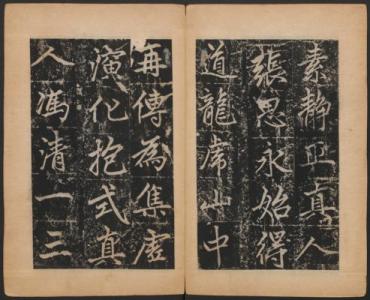 素靜正真人
張思永始得
道龍虎山中
再傳為集虛
演化抱式真
人馮清一三